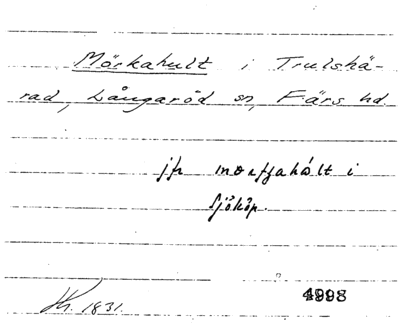 Mörkahult i Trulshä-
rad, Långaröd sn, Färs hd.
jfr mœrfjahålt i
Sjököp.
1831.
4998